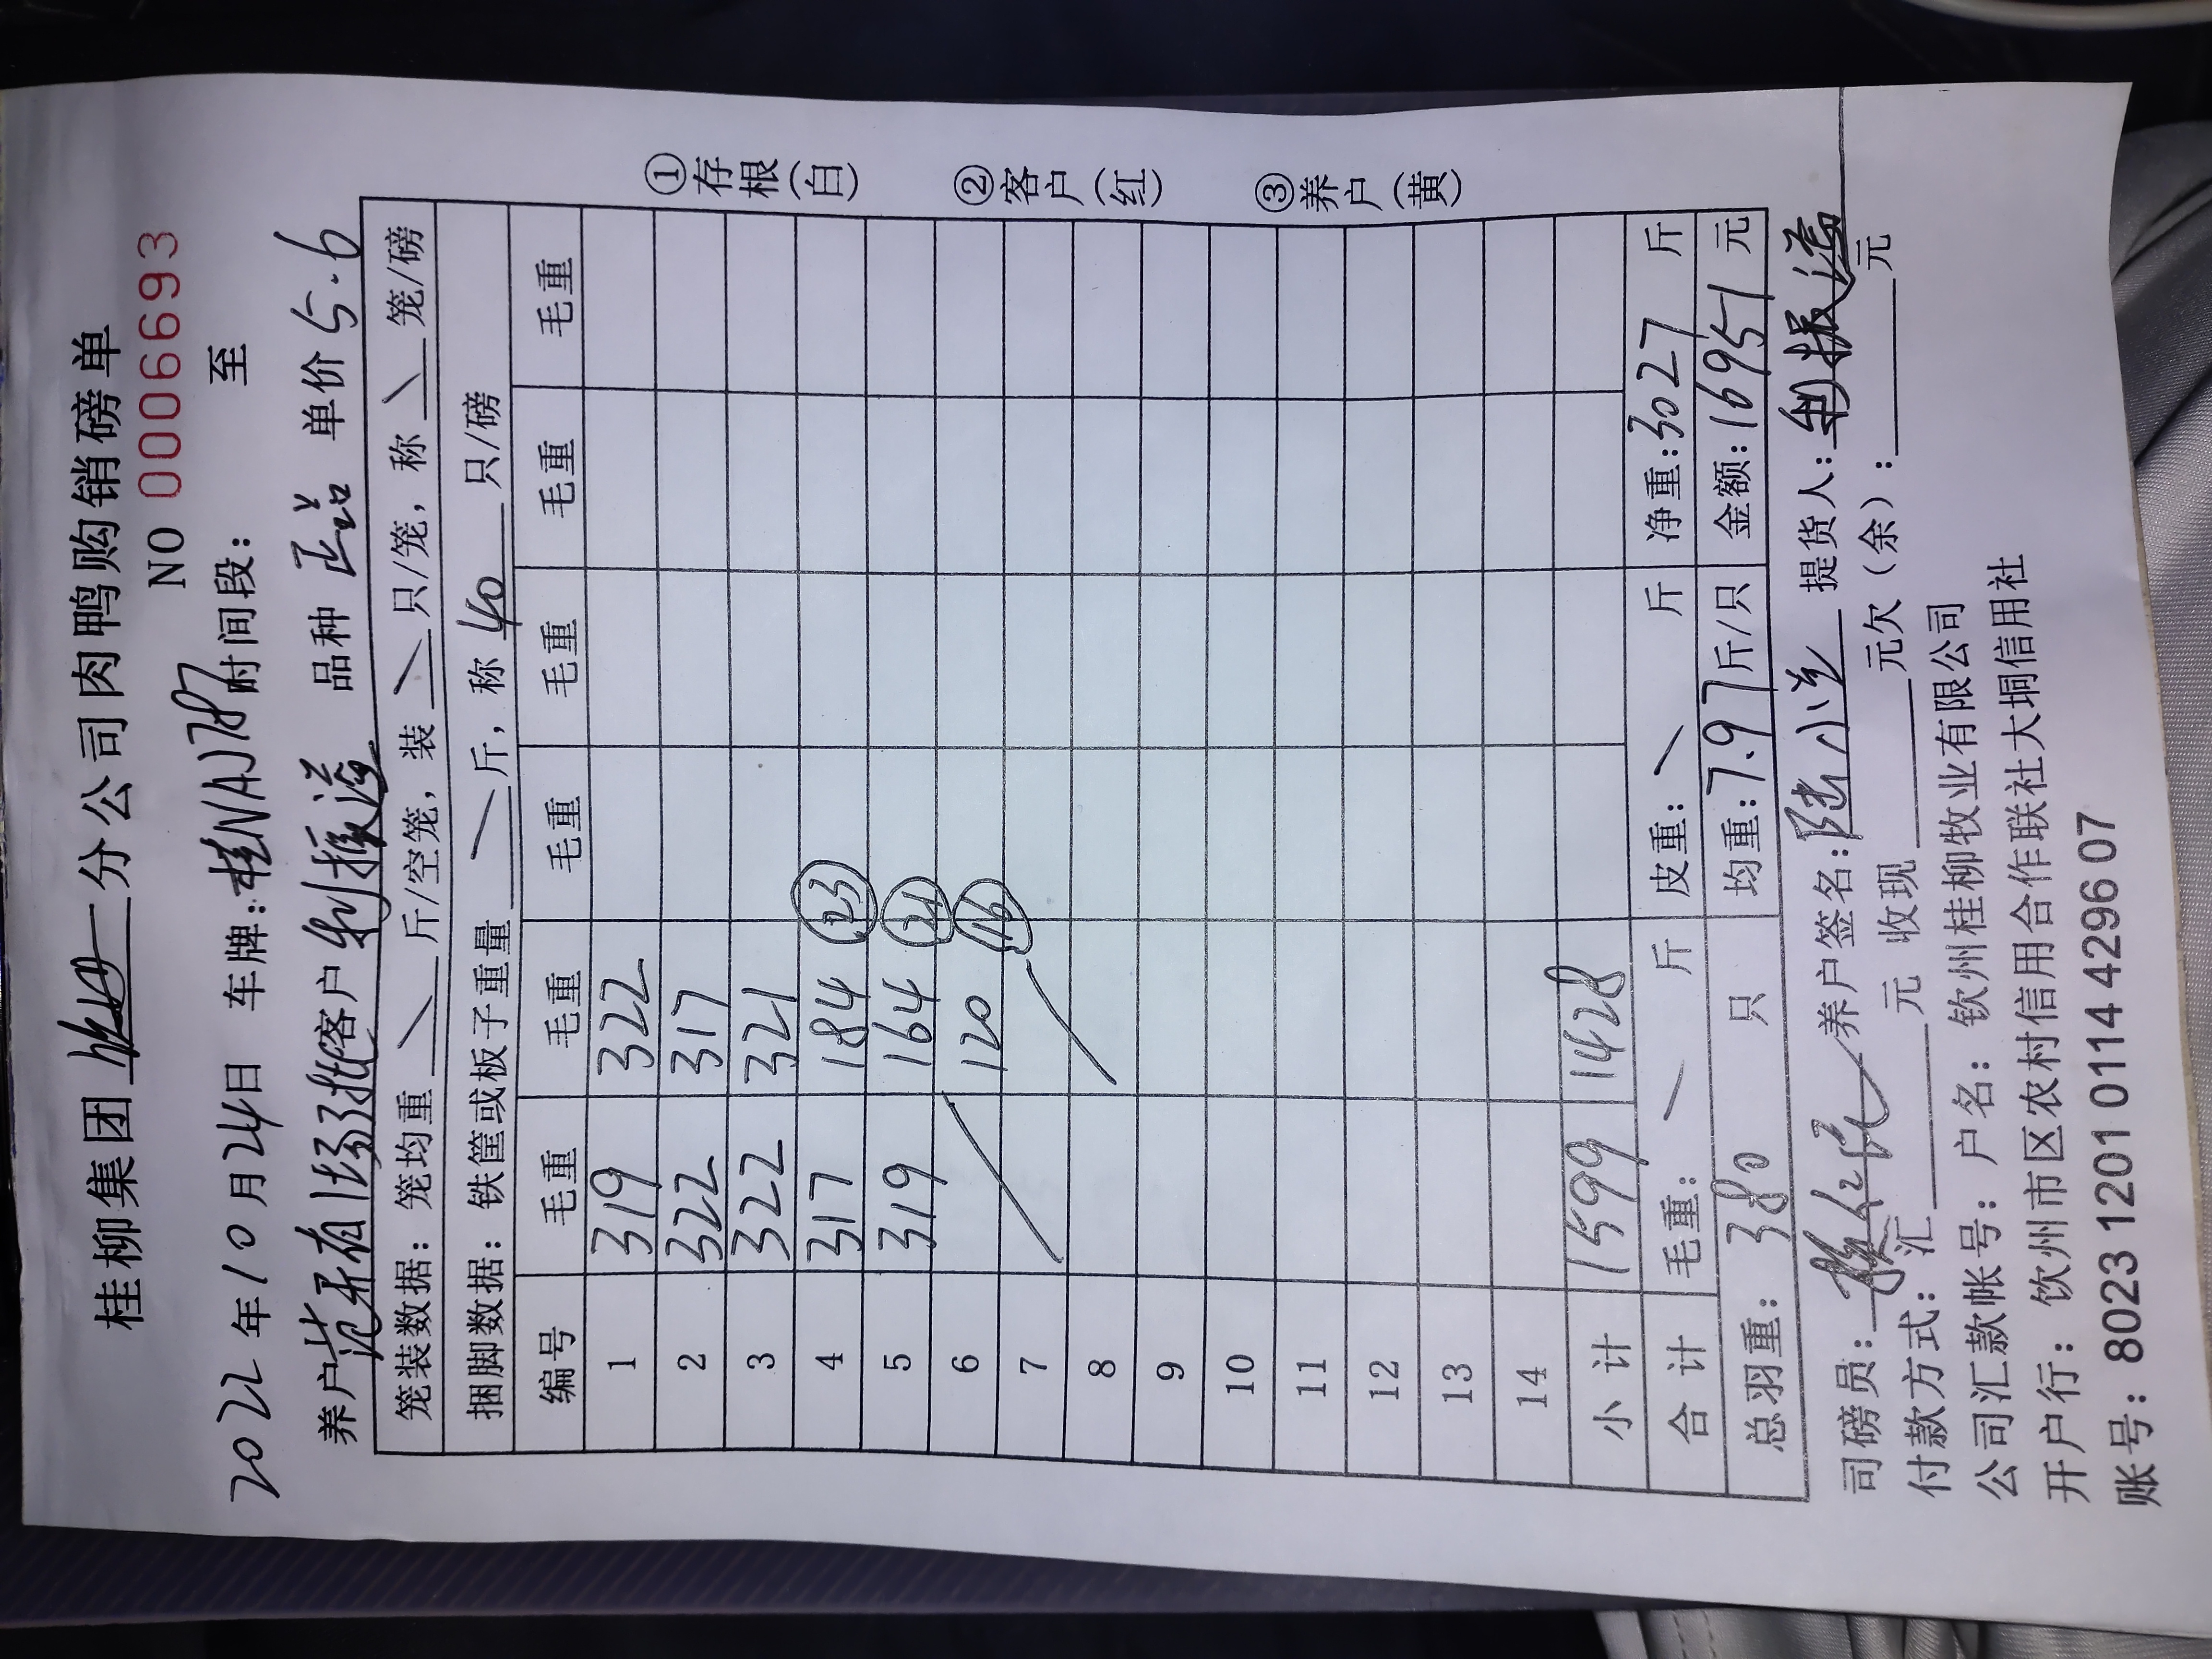 桂柳集团 分公司肉鸭购销磅单
NO 0006693
2022年10月24日 车牌:桂NAJ787 时间段: 至
养户 范开有 客户 利振溢 品种 正品 单价 5.6
笼装数据: 笼均重 \ 斤/空笼, 装 \ 只/笼, 称 \ 笼/磅
捆脚数据: 铁筐或板子重量 / 斤, 称 40 只/磅
编号 毛重 毛重 毛重 毛重 毛重 毛重
1 319 322
2 322 317
3 322 321
4 317 184 23
5 319 164 21
6 120 16
7
8
9
10
11
12
13
14
小计 1599 1428
合计 毛重: / 斤 皮重: \ 斤 净重:3027 斤
总羽重: 380 只 均重:7.97 斤/只 金额:16951 元
①存根(白)
②客户(红)
③养户(黄)
司磅员: 养户签名:陆小兰 提货人:利振溢
付款方式: 汇 元 收现 元欠(余): 元
公司汇款帐号: 户名: 钦州桂柳牧业有限公司
开户行: 钦州市区农村信用合作联社大垌信用社
账号: 8023 1201 0114 4296 07